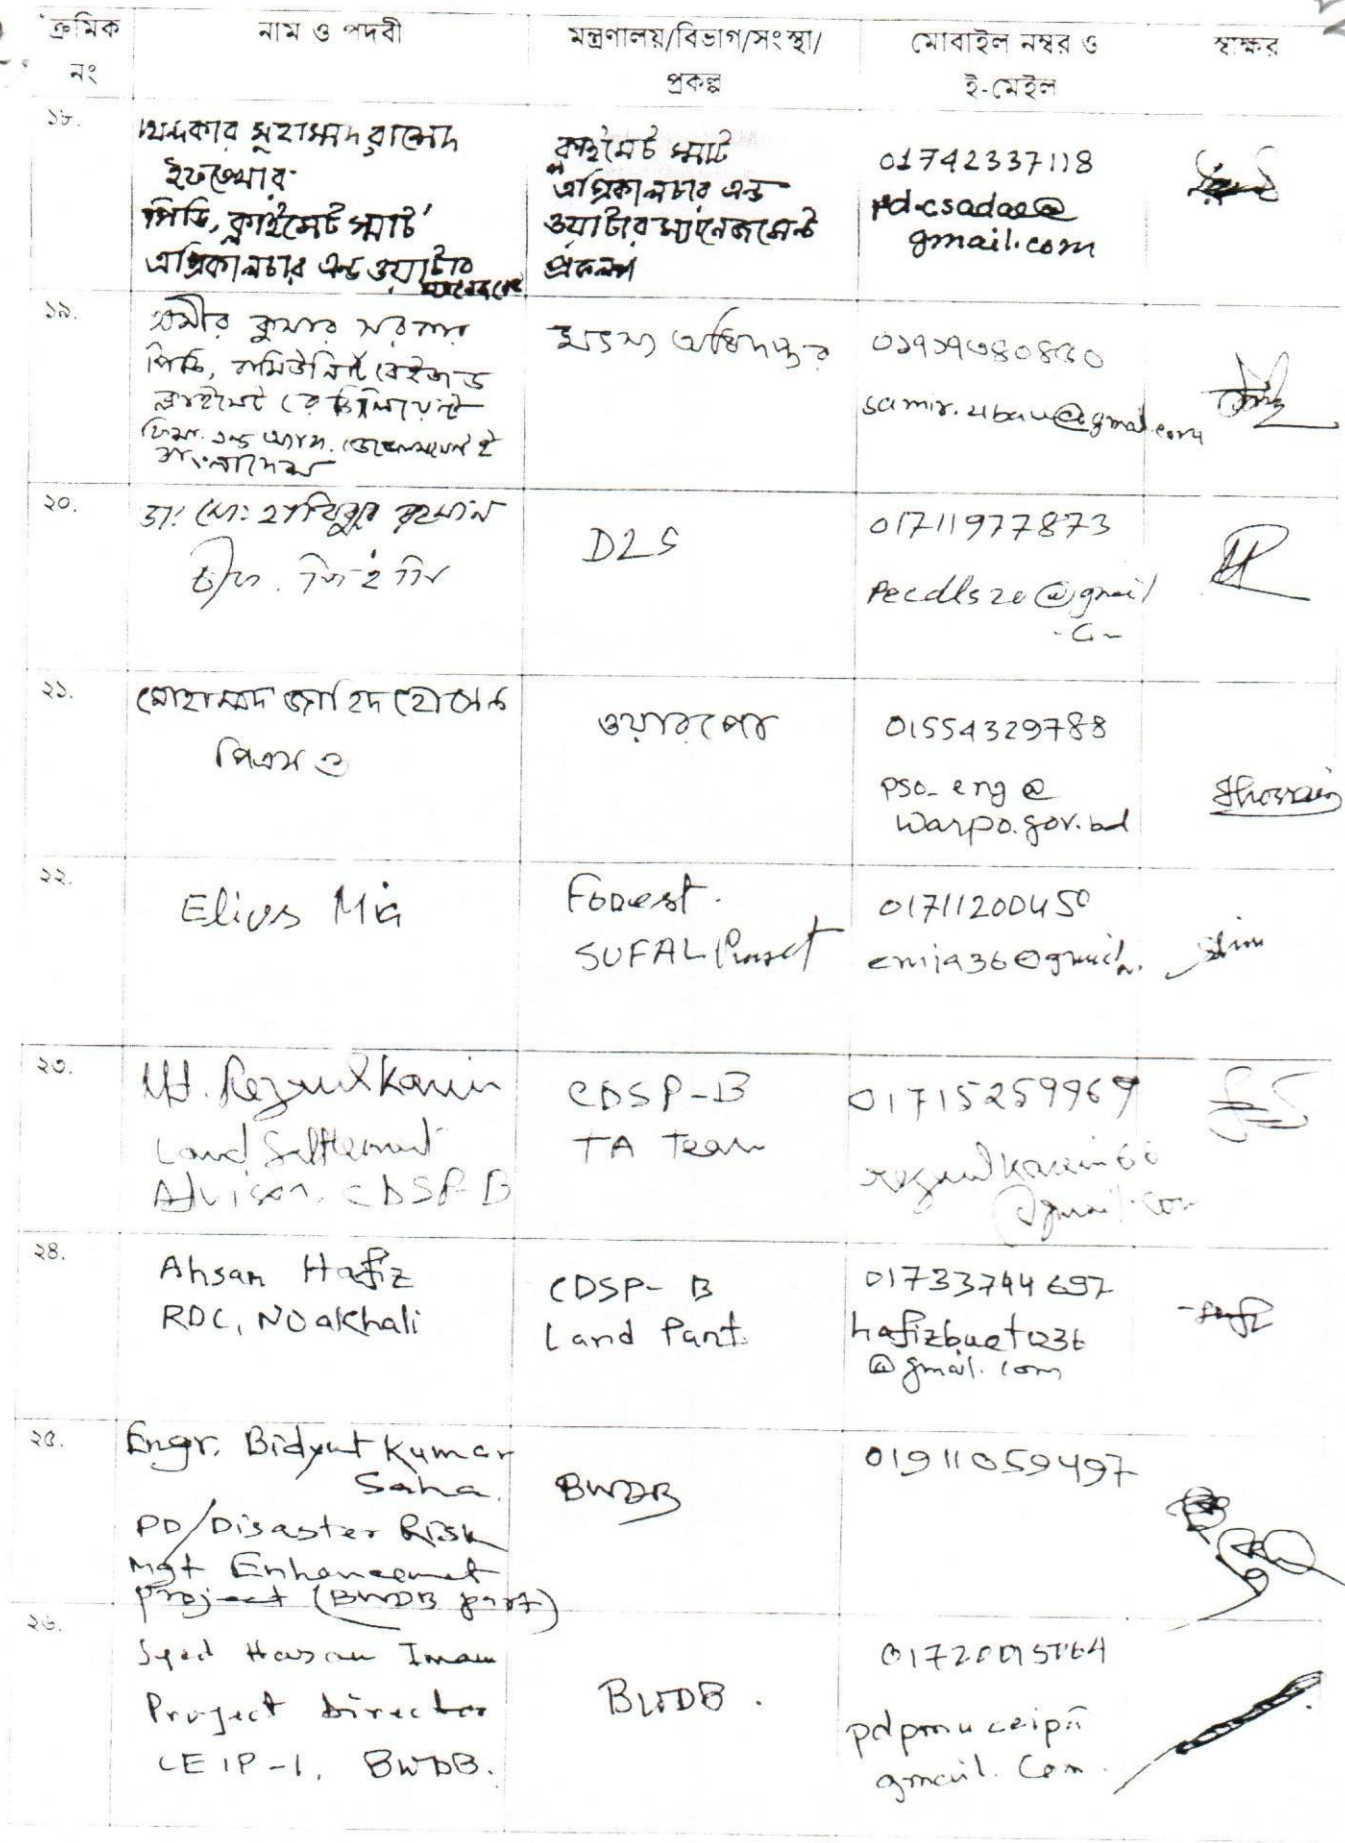 ক্রমিক নং
নাম ও পদবী
মন্ত্রণালয়/বিভাগ/সংস্থা/
প্রকল্প
মোবাইল নম্বর ও
ই-মেইল
স্বাক্ষর
১৮.
খন্দকার মুহাম্মদ রাশেদ
ইফতেখার
পিডি, ক্লাইমেট স্মার্ট
এগ্রিকালচার এন্ড ওয়াটার
ম্যানেজমেন্ট
ক্লাইমেট স্মার্ট
এগ্রিকালচার এন্ড
ওয়াটার ম্যানেজমেন্ট
প্রকল্প
01742337118
pd.csadae@
gmail.com
১৯.
সমীর কুমার সরকার
পিডি, কমিউনিটি বেইজড
ক্লাইমেট রেজিলিয়েন্ট
বাংলাদেশ
মৎস্য অধিদপ্তর
@gmail.com
২০.
ডা: মো: হাবিবুর রহমান
DLS
01711977873
pecdls20@gmail
২১.
মোহাম্মদ জাহিদ হোসেন
পিএসও
ওয়ারপো
01554329788
pso_eng@
warpo.gov.bd
২২.
Elius Mia
Forest.
SUFAL Project
01711200450
২৩.
Md. Rezaul Karim
Land Settlement
Advisor, CDSP-B
CDSP-B
TA Team
01715259969
rezaulkarim60
@gmail.com
২৪.
Ahsan Hafiz
RDC, Noakhali
CDSP- B
Land Part.
01733744697
hafizbuet1236
@gmail.com
২৫.
Engr. Bidyut Kumar
Saha.
PD/Disaster Risk
Mgt Enhancement
Project (BWDB part)
BWDB
01911059497
২৬.
Syed Hasan Imam
Project Director
CEIP-1, BWDB.
BWDB.
gmail.com.